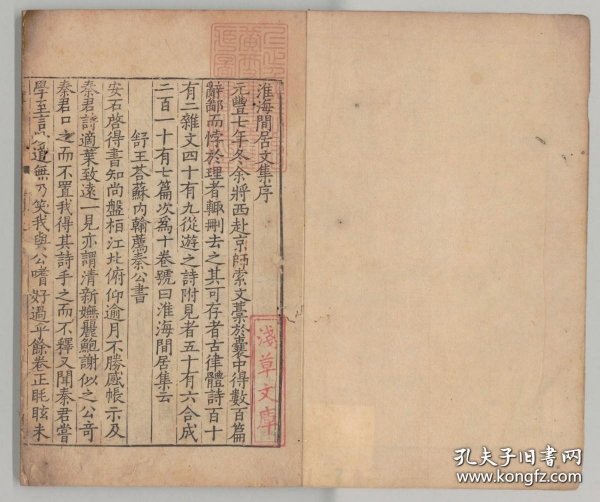 淮海閒居文集序
元豐七年冬余將西赴京師索文藁於囊中得數百篇
辭鄙而悖於理者輙刪去之其可存者古律體詩百十
有二雜文四十有九從遊之詩附見者五十有六合成
二百一十有七篇次為十卷號曰淮海閒居集云
舒王荅蘇內翰薦秦公書
安石啓得書知尚盤桓江北俯仰逾月不勝感悵示及
秦君詩適葉致遠一見亦謂清新嫵麗鮑謝似之公竒
秦君口之而不置我得其詩手之而不釋又聞秦君嘗
學至言妙道無乃笑我與公嗜好過乎餘卷正眊眩未
淺草文庫
孔夫子旧书网
www.kongfz.com